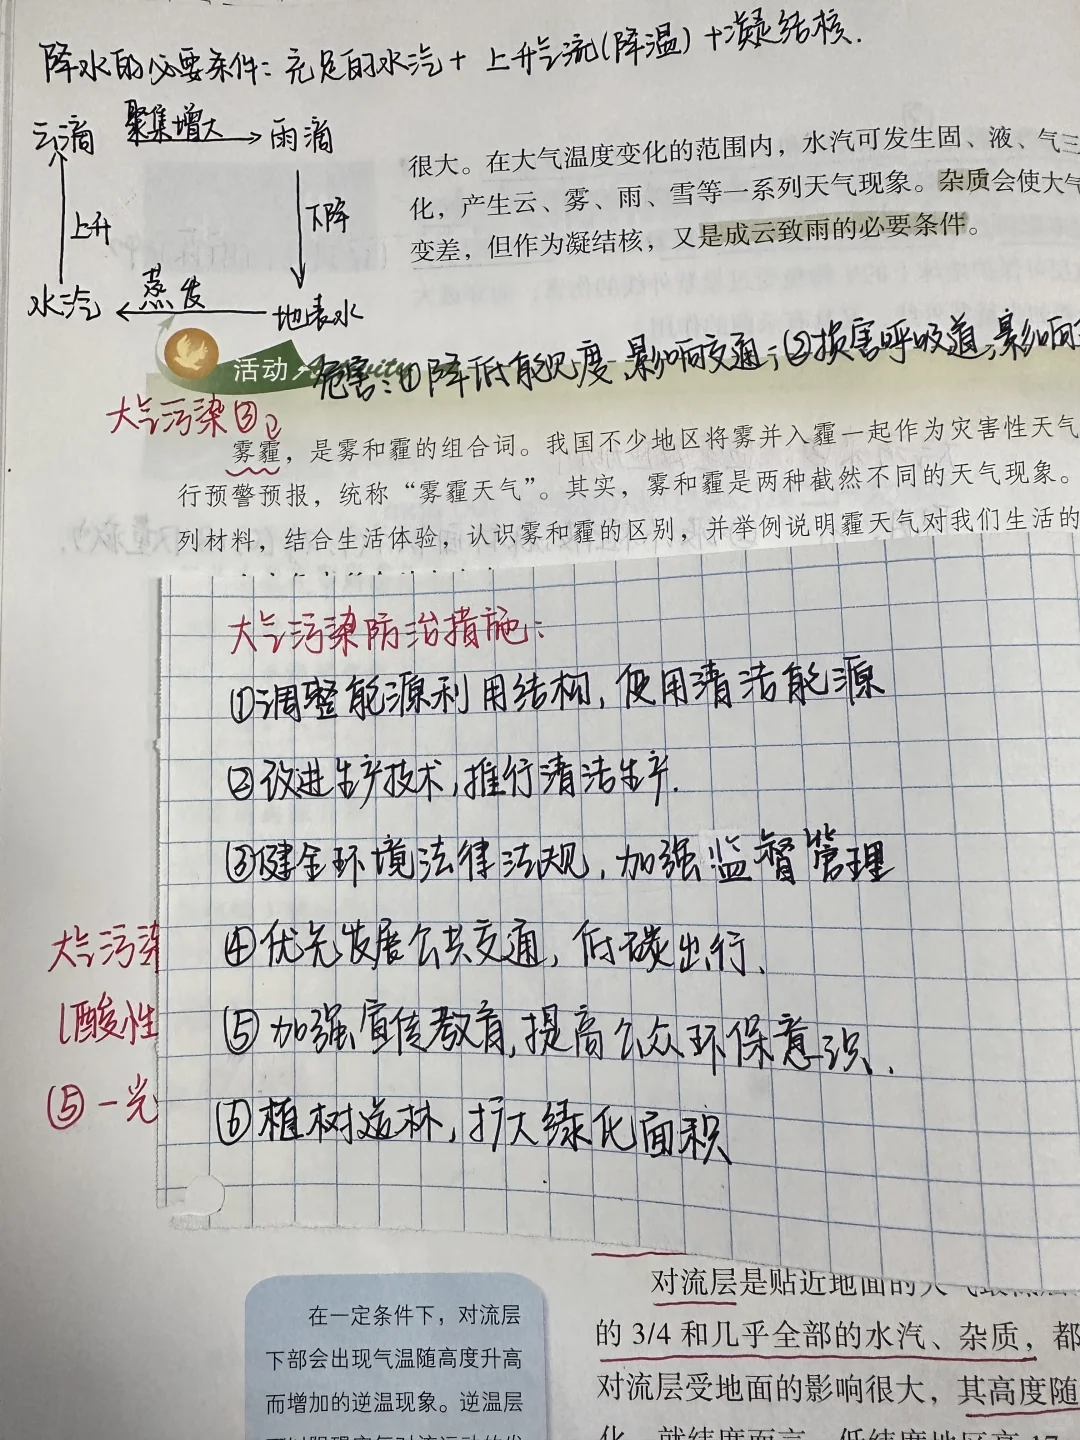 降水的必要条件：充足的水汽+上升气流(降温)+凝结核.
云滴 聚集增大 雨滴
上升 下降
水汽 蒸发 地表水
很大。在大气温度变化的范围内，水汽可发生固、液、气三
化，产生云、雾、雨、雪等一系列天气现象。杂质会使大气
变差，但作为凝结核，又是成云致雨的必要条件。
活动 Activity
危害：①降低能见度,影响交通；②损害呼吸道,影响
大气污染③
雾霾，是雾和霾的组合词。我国不少地区将雾并入霾一起作为灾害性天气
行预警预报，统称“雾霾天气”。其实，雾和霾是两种截然不同的天气现象。
列材料，结合生活体验，认识雾和霾的区别，并举例说明霾天气对我们生活的
大气污染防治措施：
①调整能源利用结构，使用清洁能源
②改进生产技术,推行清洁生产.
③健全环境法律法规，加强监督管理
④优先发展公共交通，低碳出行、
⑤加强宣传教育,提高公众环保意识.
⑥植树造林，扩大绿化面积
大气污染
(酸性
⑤一光
在一定条件下，对流层
下部会出现气温随高度升高
而增加的逆温现象。逆温层
对流层是贴近地面的大气
的 3/4 和几乎全部的水汽、杂质，都
对流层受地面的影响很大，其高度随